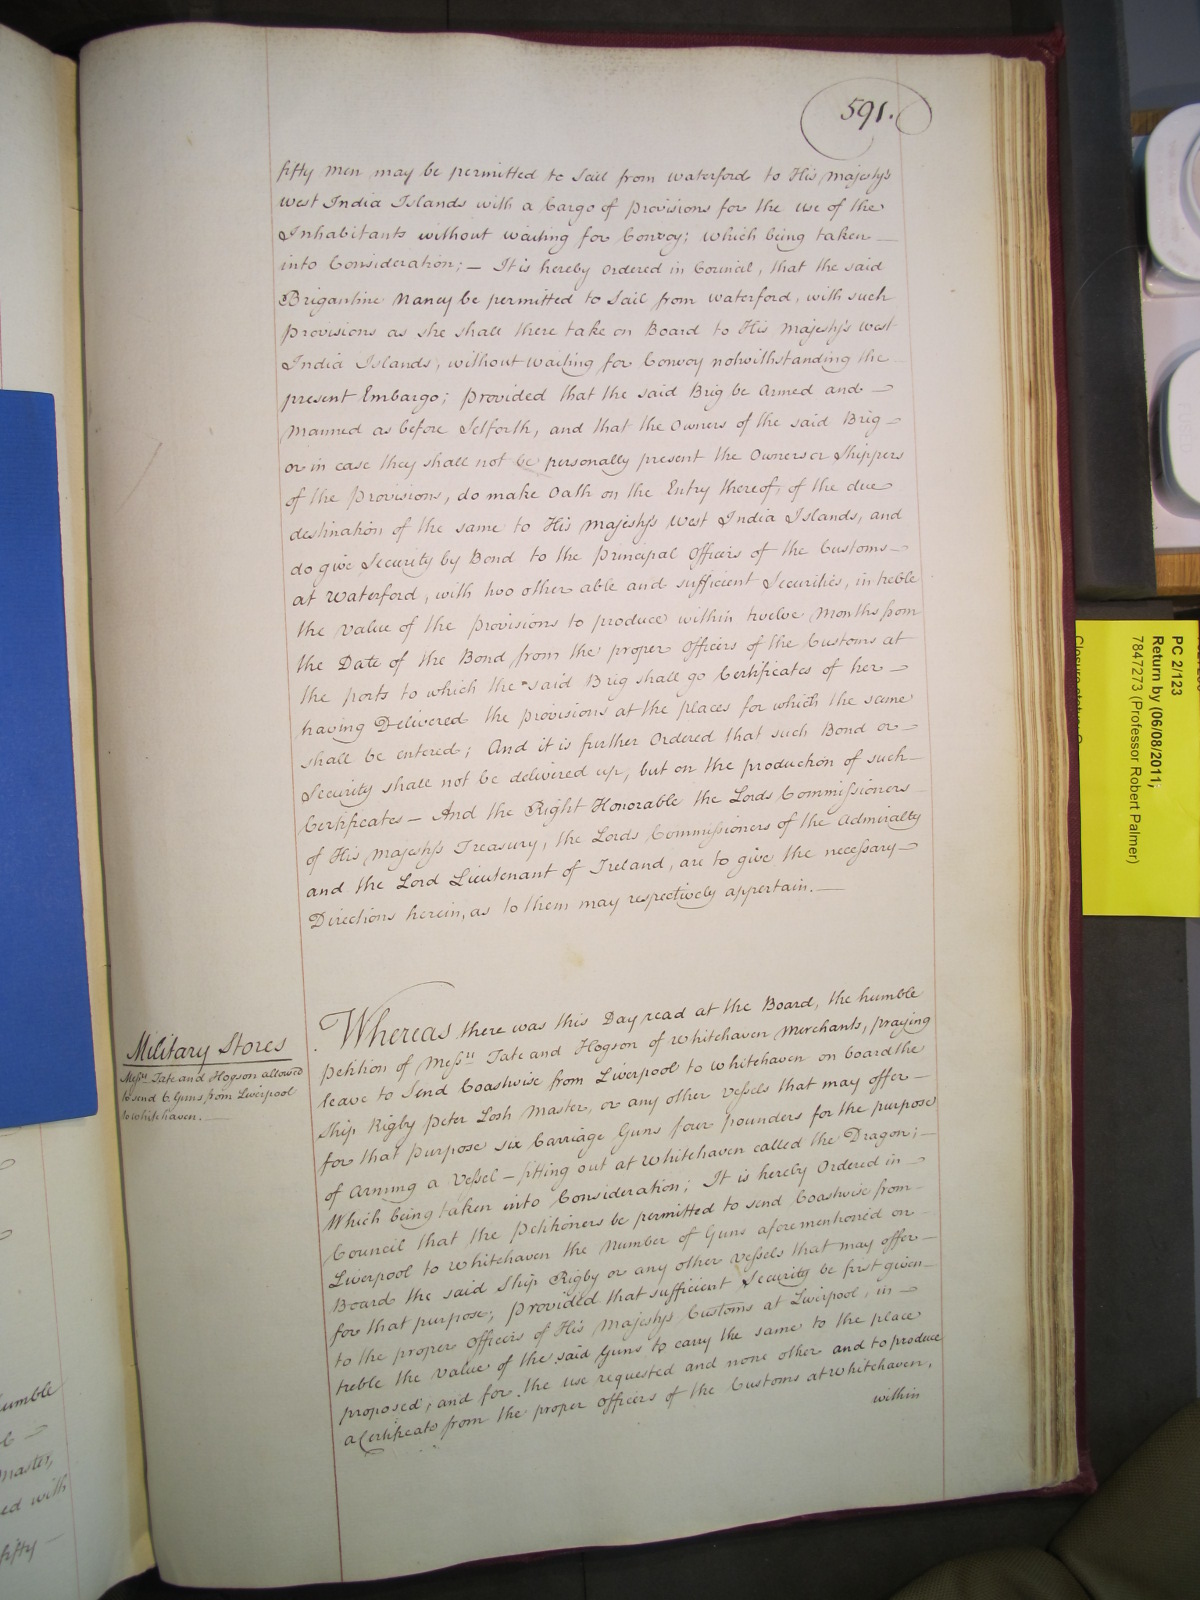 591.
fifty men may be permitted to Sail from Waterford to His Majesty's
West India Islands with a Cargo of Provisions for the use of the
Inhabitants without waiting for Convoy; which being taken —
into Consideration; — It is hereby Ordered in Council, that the said
Brigantine Nancy be permitted to Sail from Waterford, with such
Provisions as she shall there take on Board to His Majesty's West
India Islands, without waiting for Convoy notwithstanding the
present Embargo; Provided that the said Brig be Armed and —
Manned as before Setforth, and that the Owners of the said Brig —
or in case they shall not be personally present the Owners or Shippers
of the Provisions, do make Oath on the Entry thereof, of the due
destination of the same to His Majesty's West India Islands, and
do give Security by Bond to the Principal Officers of the Customs —
at Waterford, with two other able and sufficient Securities, in treble
the value of the Provisions to produce within twelve Months from
the Date of the Bond from the proper Officers of the Customs at
the ports to which the said Brig shall go Certificates of her —
having Delivered the Provisions at the places for which the same
shall be entered; And it is further Ordered that such Bond or —
Security shall not be delivered up, but on the production of such —
Certificates — And the Right Honorable the Lords Commissioners
of His Majesty's Treasury, the Lords Commissioners of the Admiralty
and the Lord Lieutenant of Ireland, are to give the necessary —
Directions herein, as to them may respectively appertain. —
Military Stores
Messrs. Tate and Hogson allowed
to send 6 Guns from Liverpool
to Whitehaven. —
Whereas there was this Day read at the Board, the humble
Petition of Messrs. Tate and Hogson of Whitehaven Merchants, praying
leave to Send Coastwise from Liverpool to Whitehaven on board the
Ship Rigby Peter Losh Master, or any other Vessels that may offer —
for that Purpose six Carriage Guns four pounders for the purpose
of Arming a Vessel — fitting out at Whitehaven called the Dragon; —
Which being taken into Consideration; It is hereby Ordered in —
Council that the Petitioners be permitted to send Coastwise from —
Liverpool to Whitehaven the Number of Guns aforementioned on —
Board the said Ship Rigby or any other Vessels that may offer —
for that purpose; Provided that sufficient Security be first given —
to the proper Officers of His Majesty's Customs at Liverpool, in —
treble the value of the said Guns to carry the same to the place
proposed; and for the use requested and none other and to produce
a Certificate from the proper Officers of the Customs at Whitehaven,
within
PC 2/123
Return by (06/08/2011;
7847273 (Professor Robert Palmer)
umble
Master,
ed with
fifty —